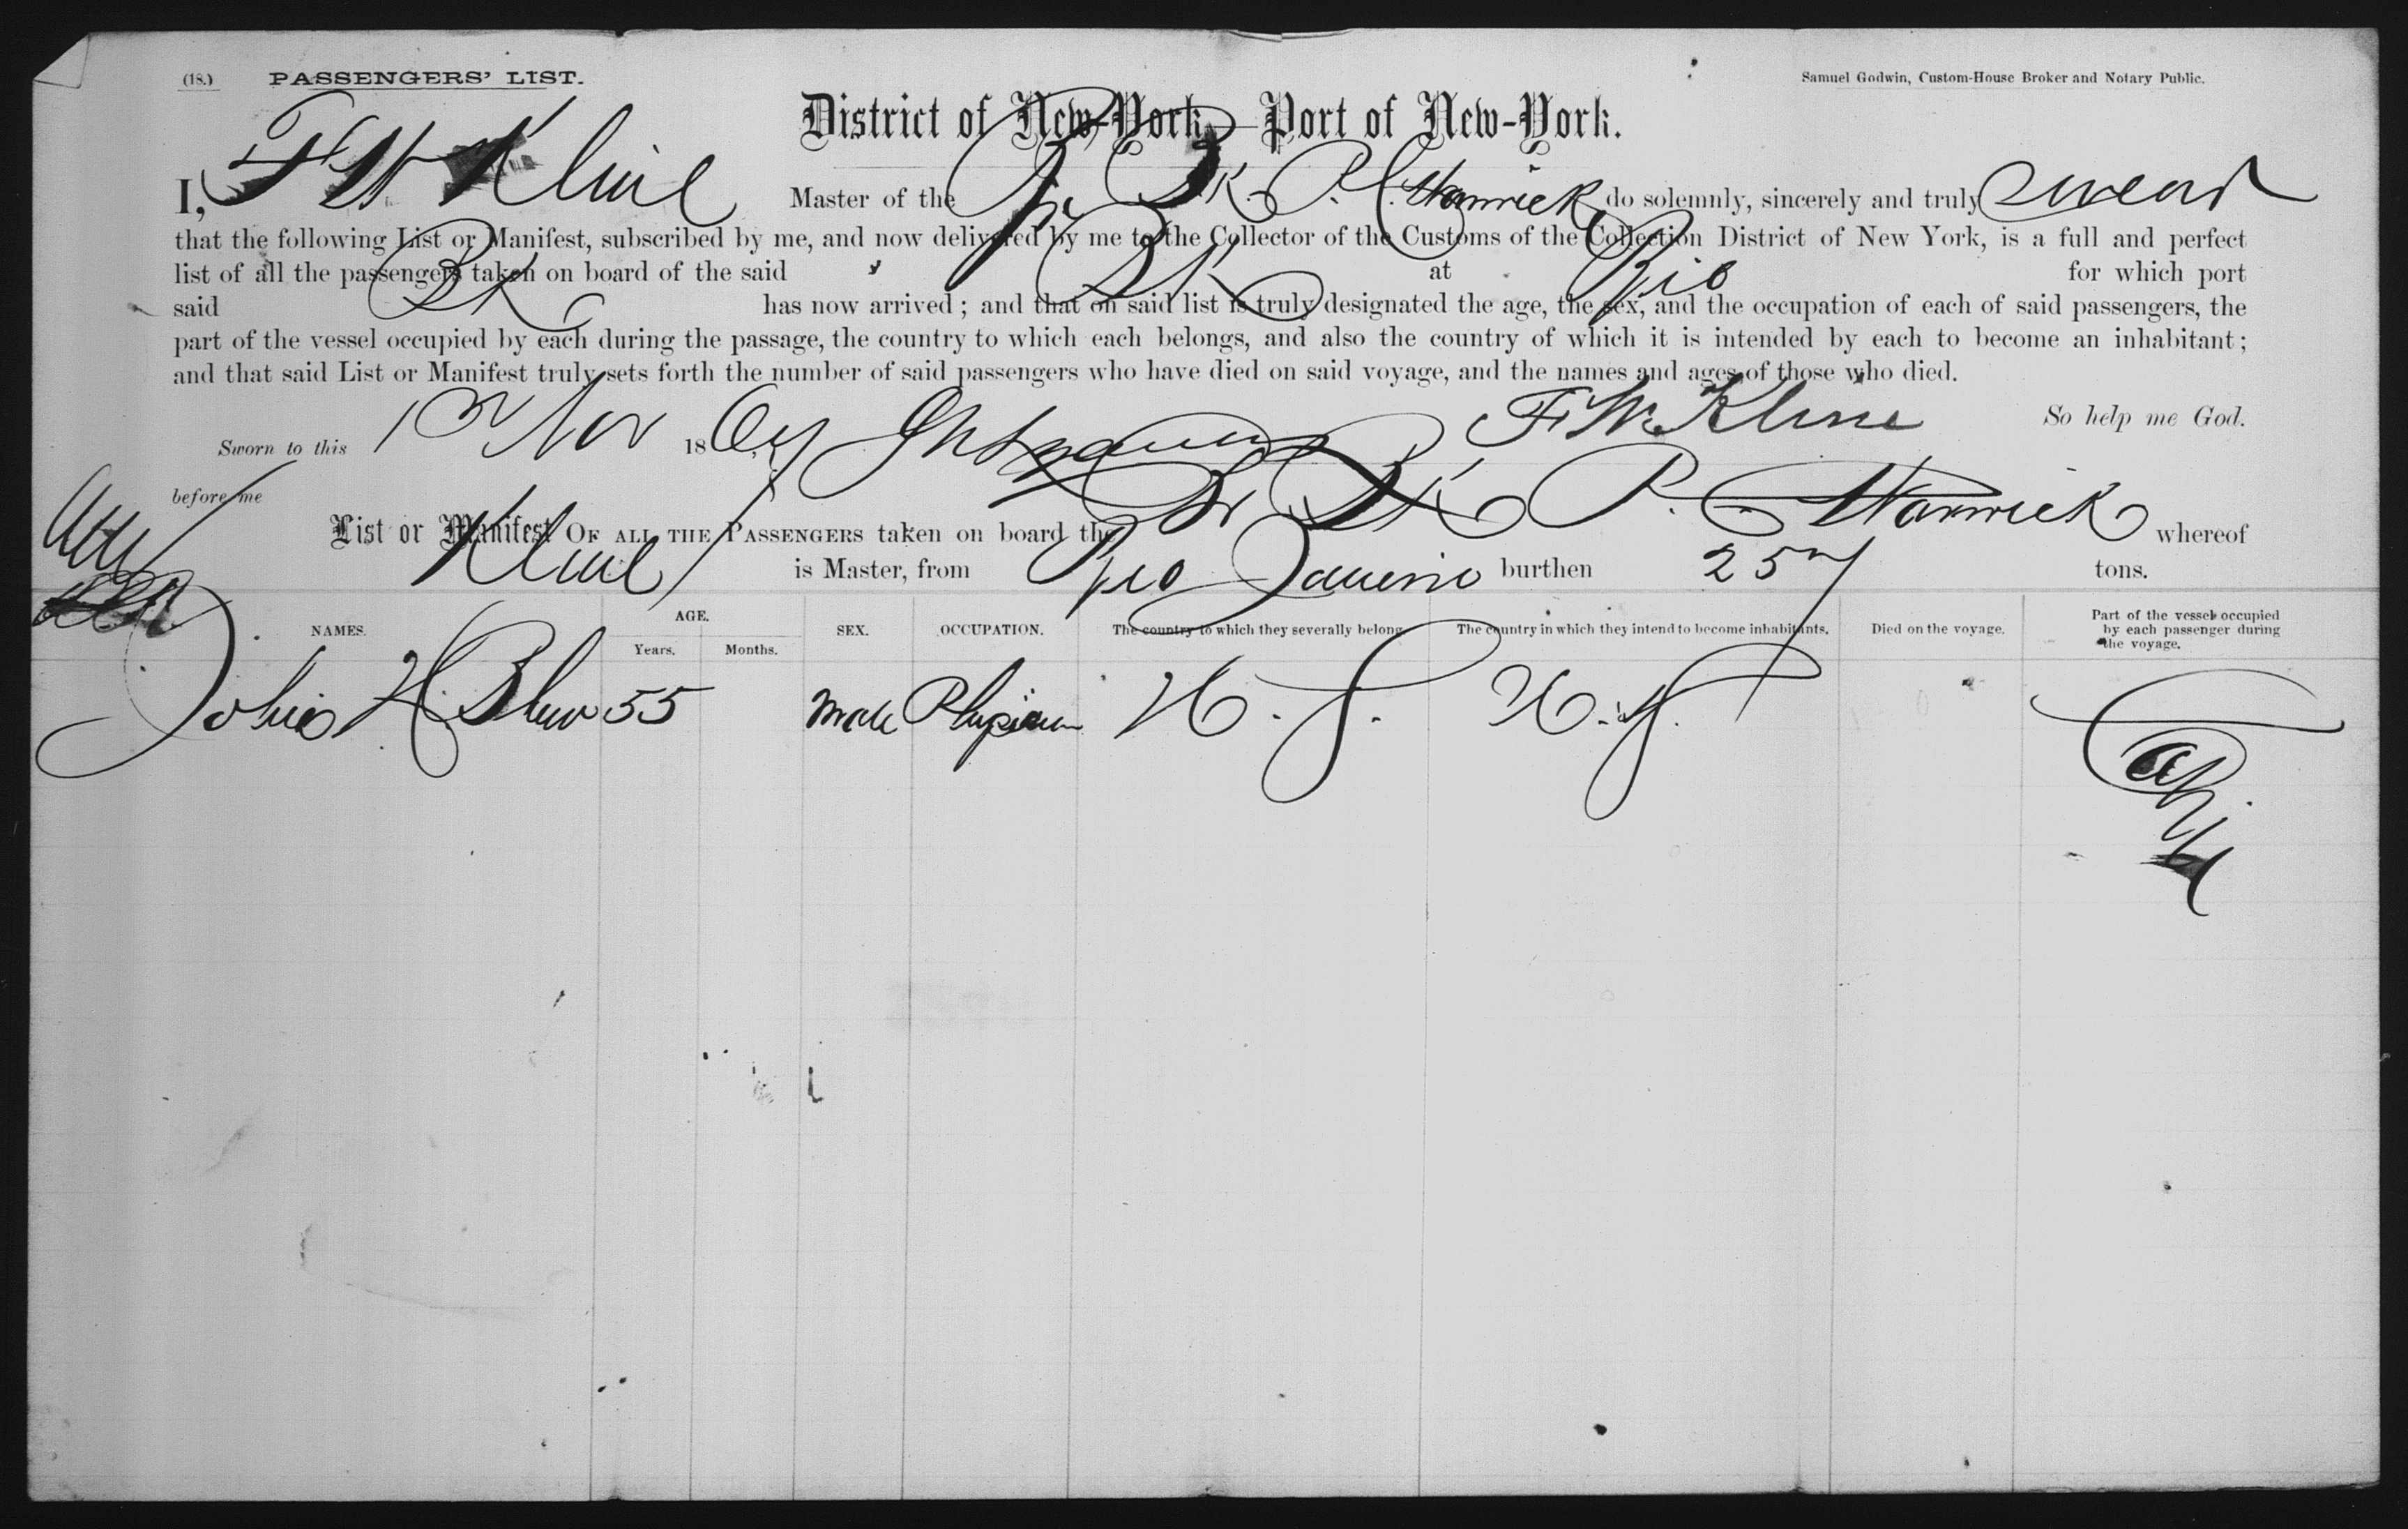 (18.) PASSENGERS' LIST. Samuel Godwin, Custom-House Broker and Notary Public.
District of New-York, Port of New-York.
I, F W Kline Master of the Br Bk. P. C. Warwick do solemnly, sincerely and truly swear
that the following List or Manifest, subscribed by me, and now delivered by me to the Collector of the Customs of the Collection District of New York, is a full and perfect
list of all the passengers taken on board of the said Bk at Rio for which port
said Bk has now arrived; and that on said list is truly designated the age, the sex, and the occupation of each of said passengers, the
part of the vessel occupied by each during the passage, the country to which each belongs, and also the country of which it is intended by each to become an inhabitant;
and that said List or Manifest truly sets forth the number of said passengers who have died on said voyage, and the names and ages of those who died.
So help me God.
Sworn to this Nov 18 F. W. Kline
before me
List or Manifest OF ALL THE PASSENGERS taken on board the Br Bk P. C. Warwick whereof
Kline is Master, from Rio Janeiro burthen 257 tons.
NAMES. AGE. Years. Months. SEX. OCCUPATION. The country to which they severally belong. The country in which they intend to become inhabitants. Died on the voyage. Part of the vessel occupied by each passenger during the voyage.
H. 55 Male Physician U. S. U. S.